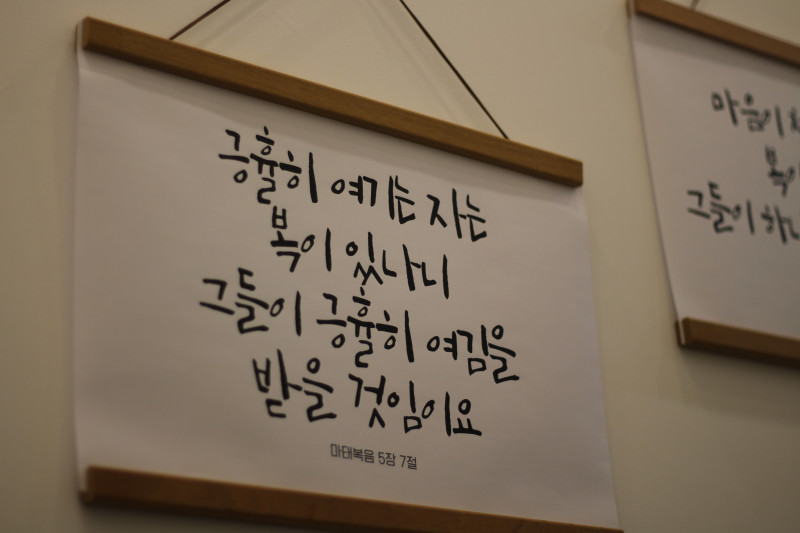 긍휼히 여기는 자는
복이 있나니
그들이 긍휼히 여김을
받을 것임이요
마태복음 5장 7절
마음이
복이
그들이 하나